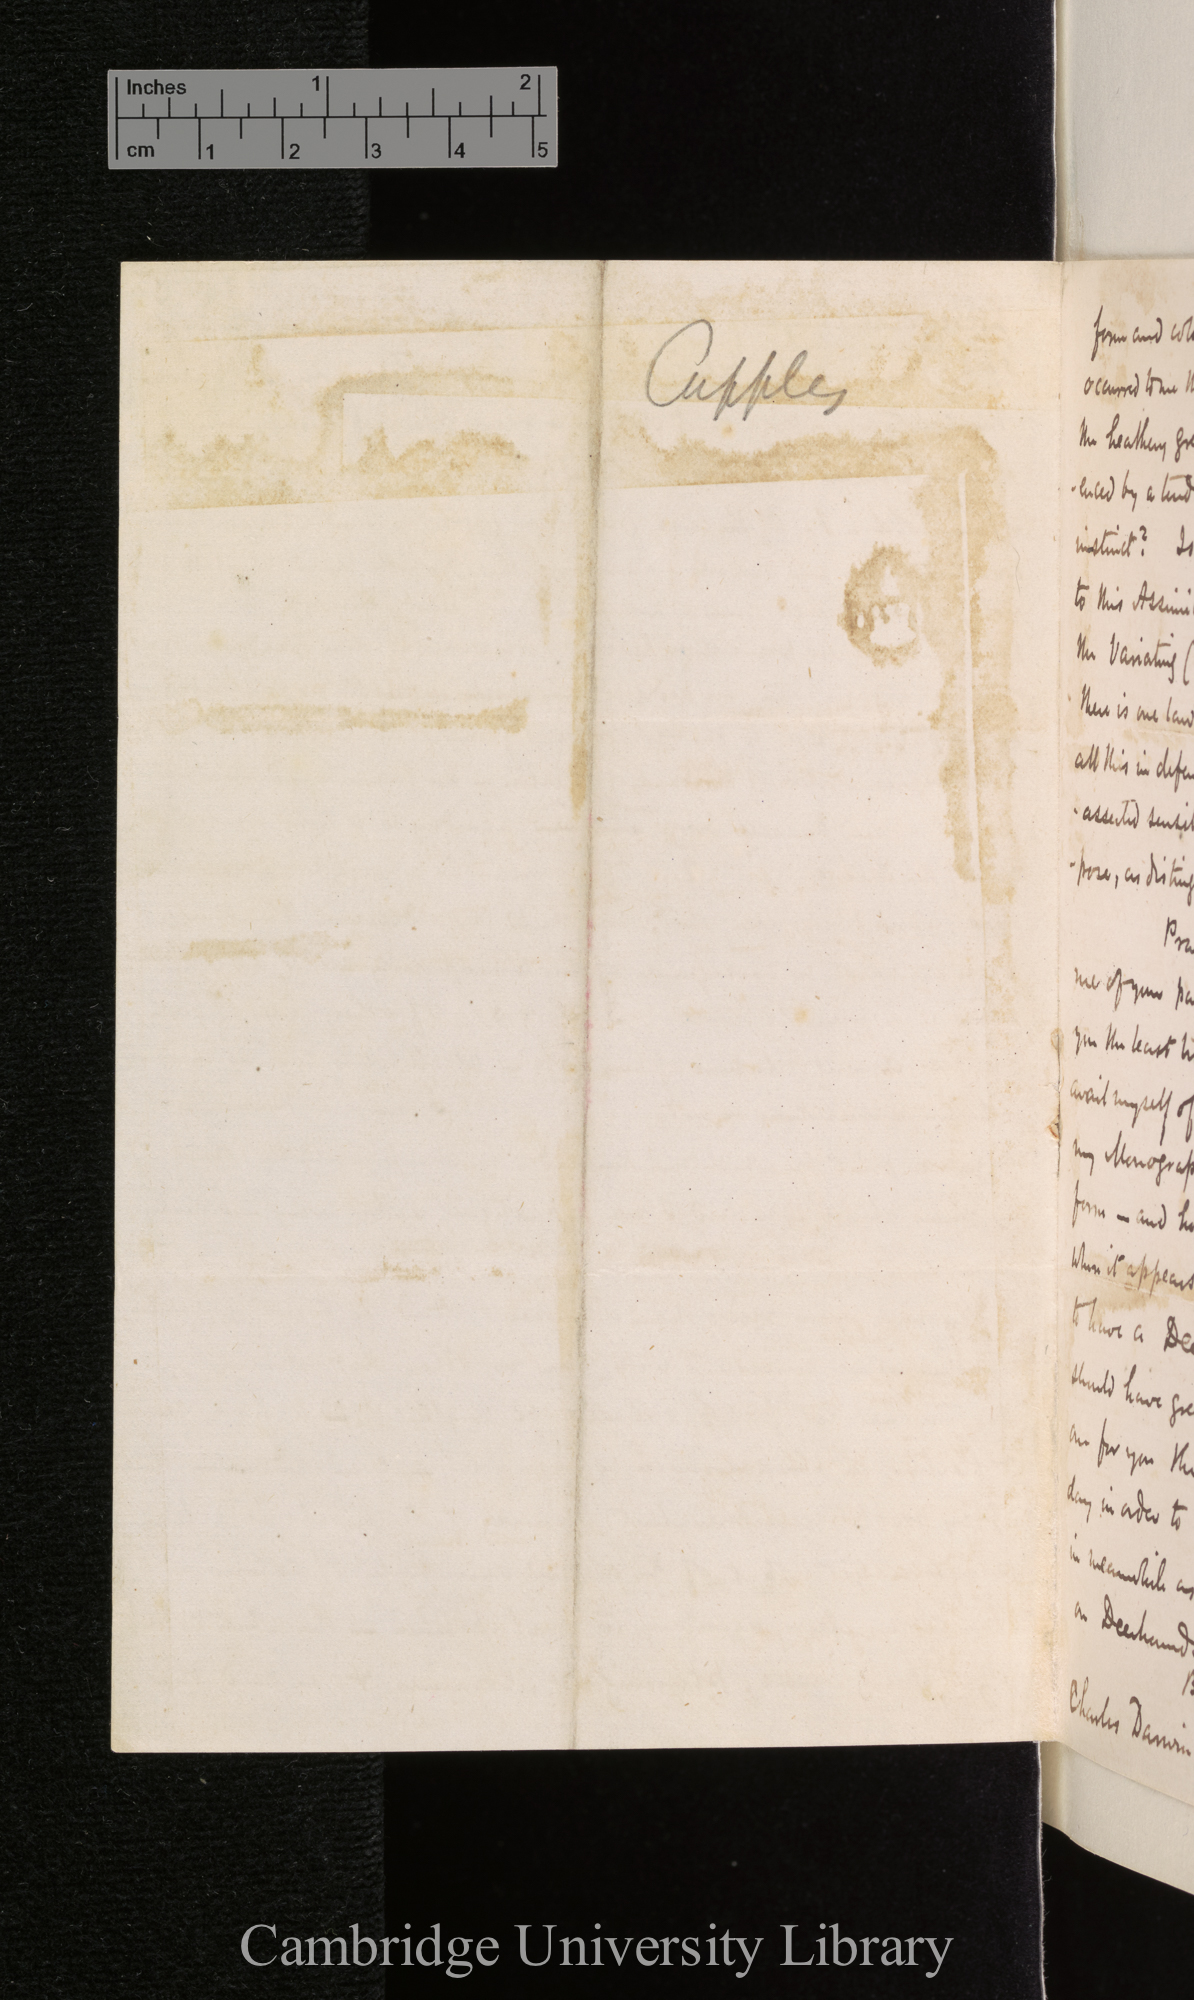 Inches 1 2
cm 1 2 3 4 5
Cupples
form and colo
occurred to me th
the heathery gre
-enced by a tend
instinct? Is
to this Assimi
the Variating (
there is one law
all this in defen
-asserted sensit
-pose, as disting
Pra
me of your pa
you the least tr
avail myself of
my Monograp
form — and ho
when it appears
to have a Dee
should have gre
am for you the
day in order to
in meanwhile as
on Deerhounds
B
Charles Darwin
Cambridge University Library